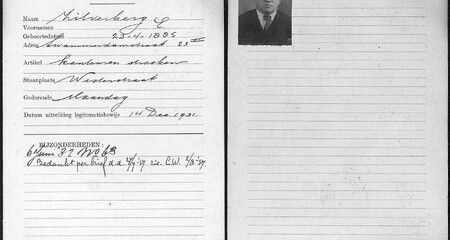 Naam Zilverberg E
Voornamen
Geboortedatum 23-4-1895
Adres Swammerdamstraat 23 III
Artikel kanten en doeken
Staanplaats Westerstraat
Gedurende Maandag
Datum uitreiking legitimatiebewijs 14 Dec. 1931.
BIJZONDERHEDEN:
6 Juni 32 No 63
Bedankt per brief d.d.